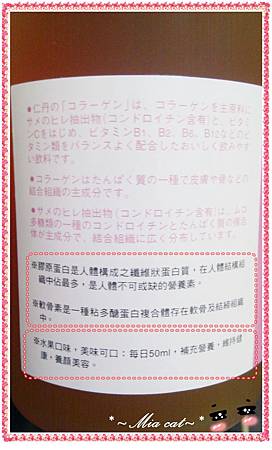 ●仁丹の「コラーゲン」は、コラーゲンを主原料に
サメのヒレ抽出物(コンドロイチン含有)と、ビタミ
ンCをはじめ、ビタミンB1、B2、B6、B12などのビ
タミン類をバランスよく配合したおいしく飲みやす
い飲料です。
●コラーゲンはたんぱく質の一種で皮膚や骨などの
結合組織の主成分です。
●サメのヒレ抽出物(コンドロイチン含有)は、ムコ
多糖類の一種のコンドロイチンとたんぱく質の複合
体が主成分で、結合組織に広く分布しています。
※膠原蛋白是人體構成之纖維狀蛋白質，在人體結構組
織中佔最多，是人體不可或缺的營養素。
※軟骨素是一種粘多醣蛋白複合體存在軟骨及結締組織
中。
※水果口味，美味可口：每日50ml，補充營養，維持健
康，養顏美容。
*~ Mia cat~ *